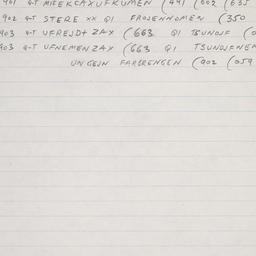 901 4-T MIEKCAXUFKUMEN (441 (602 (635
902 4-T STERE XX QI FROJENNOMEN (350
903 4-T UFREJDT ZAX (663 QI TSUNOJF (0
903 4-T UFNEMEN ZAX (663 QI TSUNOJFNEM
UNGEJN FARBRENGEN (902 (059